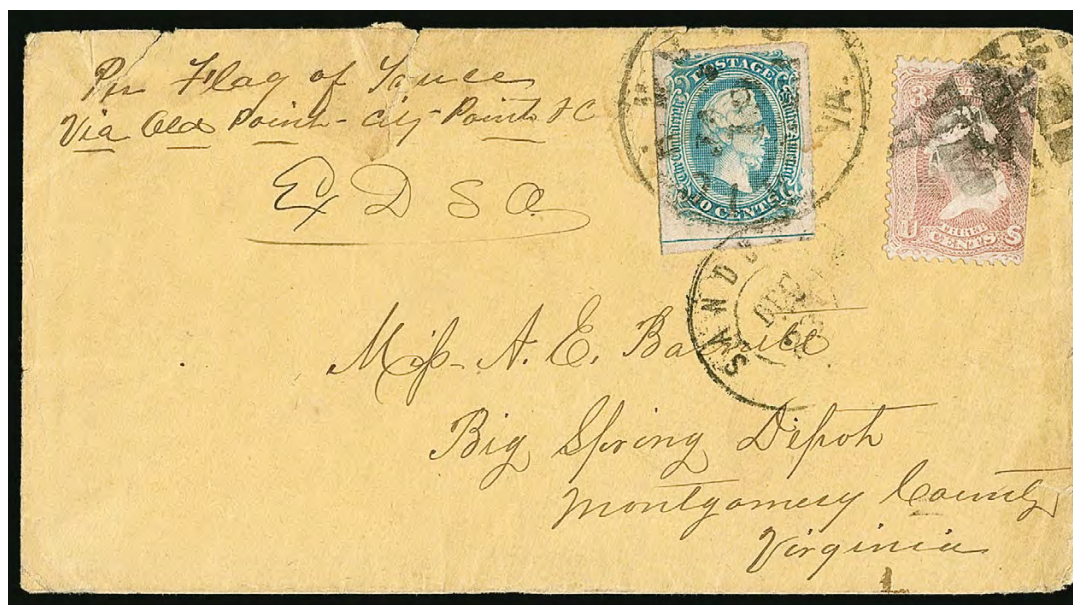 Per Flag of Truce
Via Old Point - City Point &C
Ex D S O.
VA.
POSTAGE
Confederate States America
CENTS
3
CENTS
SAND
DEC
Miss A. E.
Big Spring Depot
Montgomery County
Virginia